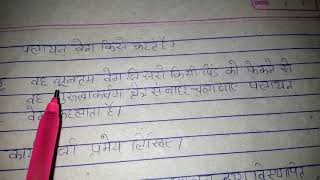 पलायन वेग किसे कहते है।
वह न्यूनतम वेग जिससे किसी पिंड को फेंकने से
वह गुरुत्वाकर्षण क्षेत्र से बाहर चला जाए पलायन
वेग कहलाता है।
प्रमेय लिखिए।